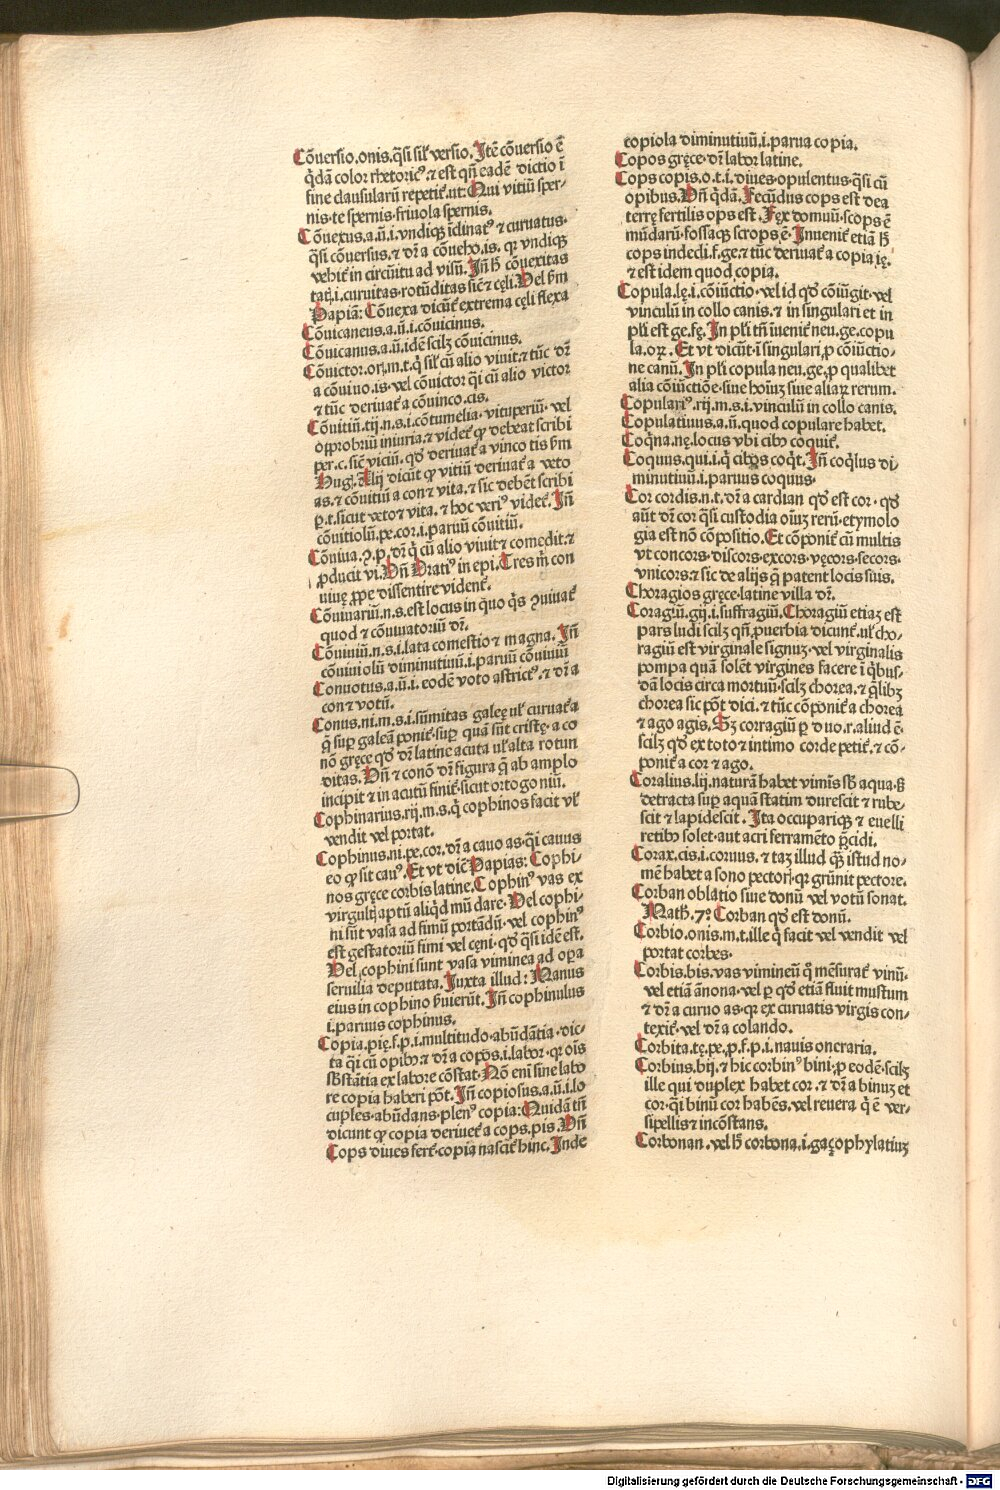 Cõuersio.onis.q̃si sił versio. Itẽ cõuersio ẽ
q̃dã color rhetoricꝰ.⁊ est qñ eadẽ dictio ĩ
fine clausularũ repetit̃.ut: Qui vitiũ sper-
nis·te spernis·friuola spernis.
Cõuexus.a.ũ.i.vndiqꝫ ĩclinatꝰ ⁊ curuatus·
q̃si cõuersus.⁊ dr̃ a cõueho.is. qꝛ vndiqꝫ
vehit̃ in circũitu ad visũ. Iñ h̃ cõuexitas
tatꝭ.i.curuitas·rotũditas sic̃ ⁊ cęli. Vel ẜm
Papiã: Cõuexa dicũt̃ extrema cęli flexa
Cõuicaneus.a.ũ.i.cõuicinus.
Cõuicanus.a.ũ.idẽ scilꝫ cõuicinus.
Cõuictor.orꝭ.m.t.q̃ sił cũ alio viuit·⁊ tũc dr̃
a cõuiuo.is·vel cõuictor q̃i cũ alio victor
⁊ tũc deriuat̃ a cõuinco.cis.
Cõuitiũ.tij.n.s.i.cõtumelia·vituperiũ·vel
opprobriũ iniuria.⁊ videt̃ ꝙ debeat scribi
per.c.sic̃ viciũ.qð deriuat̃ a vinco tis ẜm
Hug. Alij dicũt ꝙ vitiũ deriuat̃ a veto
as.⁊ cõuitiũ a con ⁊ vita.⁊ sic debẽt scribi
ꝑ.t.sicut veto ⁊ vita.⁊ hoc veriꝰ videt̃. Iñ
cõuitiolũ.pe.cor.i.paruũ cõuitiũ.
Cõuiua.ꝯ.p.dr̃ q̃ cũ alio viuit ⁊ comedit.⁊
ꝓducit vi. Vñ Oratiꝰ in epi. Tres m̃ con
uiuę ꝓpe dissentire vident̃.
Cõuiuariũ.n.s.est locus in quo q̃s ꝯuiuat̃
quod ⁊ cõuiuatoriũ dr̃.
Cõuiuiũ.n.s.i.lata comestio ⁊ magna. Iñ
cõuiuiolũ diminutiuũ.i.paruũ cõuiuiũ
Conuotus.a.ũ.i.eodẽ voto astrictꝰ.⁊ dr̃ a
con ⁊ votũ.
Conus.ni.m.s.i.sũmitas galeę uł curuat̃a
q̃ suꝑ galeã ponit̃·suꝑ quã sũt cristę·a co
nõ gręce qð dr̃ latine acuta uł alta rotun
ditas. Vñ ⁊ conõ dr̃ figura q̃ ab amplo
incipit ⁊ in acutũ finit̃·sicut ortogoniũ.
Cophinarius.rij.m.s.q̃ cophinos facit vł
vendit vel portat.
Cophinus.ni.pe.cor.dr̃ a cauo as·q̃i cauus
eo ꝙ sit cauꝰ. Et vt dic̃ Papias: Cophi-
nos gręce corbis latine. Cophinꝰ vas ex
virgulꝭ aptũ aliqð mũdare· Vel cophi-
ni sũt vasa ad fimũ portãdũ·vel cophinꝰ
est gestatoriũ fimi vel cęni·qð q̃si idẽ est.
Vel cophini sunt vasa viminea ad opa
seruilia deputata. Iuxta illud: Manus
eius in cophino ẜuierũt. Iñ cophinulus
i.paruus cophinus.
Copia.pię.f.p.i.multitudo·abũdãtia·dic-
ta q̃i cũ opibꝰ·⁊ dr̃ a copos.i.labor·qꝛ oĩs
sb̃stãtia ex labore cõstat· Nõ enĩ sine labo
re copia haberi põt. Iñ copiosus.a.ũ.i.lo
cuples·abũdans·plenꝰ copia: Quidã tñ
dicunt ꝙ copia deriuet̃ a cops.pis. Vñ
Cops diues fert̃·copia nascit̃ hinc. Inde
copiola diminutiuũ.i.parua copia.
Copos gręce·dr̃ labor latine.
Cops copis.o.t.i.diues·opulentus·q̃si cũ
opibus. Vñ q̃dã. Fecũdus cops est dea
terrę fertilis ops est. Fęx domuũ·scops ẽ
mũdarũ·fossaqꝫ scrops ẽ· Inuenit̃ etiã h̃
cops indecli.f.ge.⁊ tũc deriuat̃ a copia ię.
⁊ est idem quod copia.
Copula.lę.i.cõiũctio·vel id qð cõiũgit·vel
vinculũ in collo canis.⁊ in singulari et in
plı̃ est ge.fę. In plı̃ tñ ĩuenit̃ neu.ge.copu
la.oꝝ. Et vt dicũt·ĩ singulari ꝓ cõiũctio-
ne canũ. In plı̃ copula neu.ge.ꝓ qualibet
alia cõiũctiõe·siue hoĩuꝫ siue aliaꝝ rerum.
Copulariꝰ.rij.m.s.i.vinculũ in collo canis.
Copulatiuus.a.ũ.quod copulare habet.
Coq̃na.nę.locus vbi cibꝰ coquit̃.
Coquus.qui.i.q̃ cibos coq̃t. Iñ coq̃lus di-
minutiuũ.i.paruus coquus·
Cor cordis.n.t.dr̃ a cardian qð est cor·qð
aũt dr̃ cor q̃si custodia oĩuꝫ rerũ·etymolo
gia est nõ cõpositio. Et cõponit̃ cũ multis
vt concors·discors·excors·vęcors·secors·
vnicors:⁊ sic de alijs q̃ patent locis suis.
Choragios gręce·latine villa dr̃.
Coragiũ.gij.i.suffragiũ. Choragiũ etiaꝫ est
pars ludi scilꝫ qñ ꝓuerbia dicunt̃.uł cho-
ragiũ est virginale signuꝫ·vel virginalis
pompa quã solẽt virgines facere ĩ q̃bus-
dã locis circa mortuũ·scilꝫ chorea.⁊ q̃libꝫ
chorea sic põt dici.⁊ tũc cõponit̃ a chorea
⁊ ago agis. Sꝫ corragiũ ꝑ duo.r.aliud ẽ·
scilꝫ qð ex toto ⁊ intimo corde petit̃.⁊ cõ-
ponit̃ a cor ⁊ ago.
Coralius.lij.naturã habet vimĩs sb̃ aqua.ß
detracta suꝑ aquã statim durescit ⁊ rube-
scit ⁊ lapidescit. Ita occupariqꝫ ⁊ euelli
retibꝰ solet·aut acri ferramẽto p̃cidi.
Corax.cis.i.coruus.⁊ taꝫ illud q̃ꝫ istud no-
mẽ habet a sono pectorꝭ·qꝛ grũnit pectore.
Corban oblatio siue donũ vel votũ sonat.
Math̃.7º Corban qð est donũ.
Corbio.onis.m.t.ille q̃ facit vel vendit vel
portat corbes·
Corbis.bis.vas vimineũ q̃ mẽsurat̃ vinũ·
vel etiã ãnona·vel ꝑ qð etiã fluit mustum
⁊ dr̃ a curuo as·qꝛ ex curuatis virgis con-
texit̃·vel dr̃ a colando.
Corbita.tę.pe.ꝓ.f.p.i.nauis oneraria.
Corbius.bij.⁊ hic corbinꝰ bini·ꝓ eodẽ·scilꝫ
ille qui duplex habet cor.⁊ dr̃ a binuꝫ et
cor·q̃i binũ cor habẽs.vel reuera q̃ ẽ ver-
sipellis ⁊ incõstans.
Corbonan.vel h̃ corbona.i.gaçophylatiuꝫ
Digitalisierung gefördert durch die Deutsche Forschungsgemeinschaft - DFG